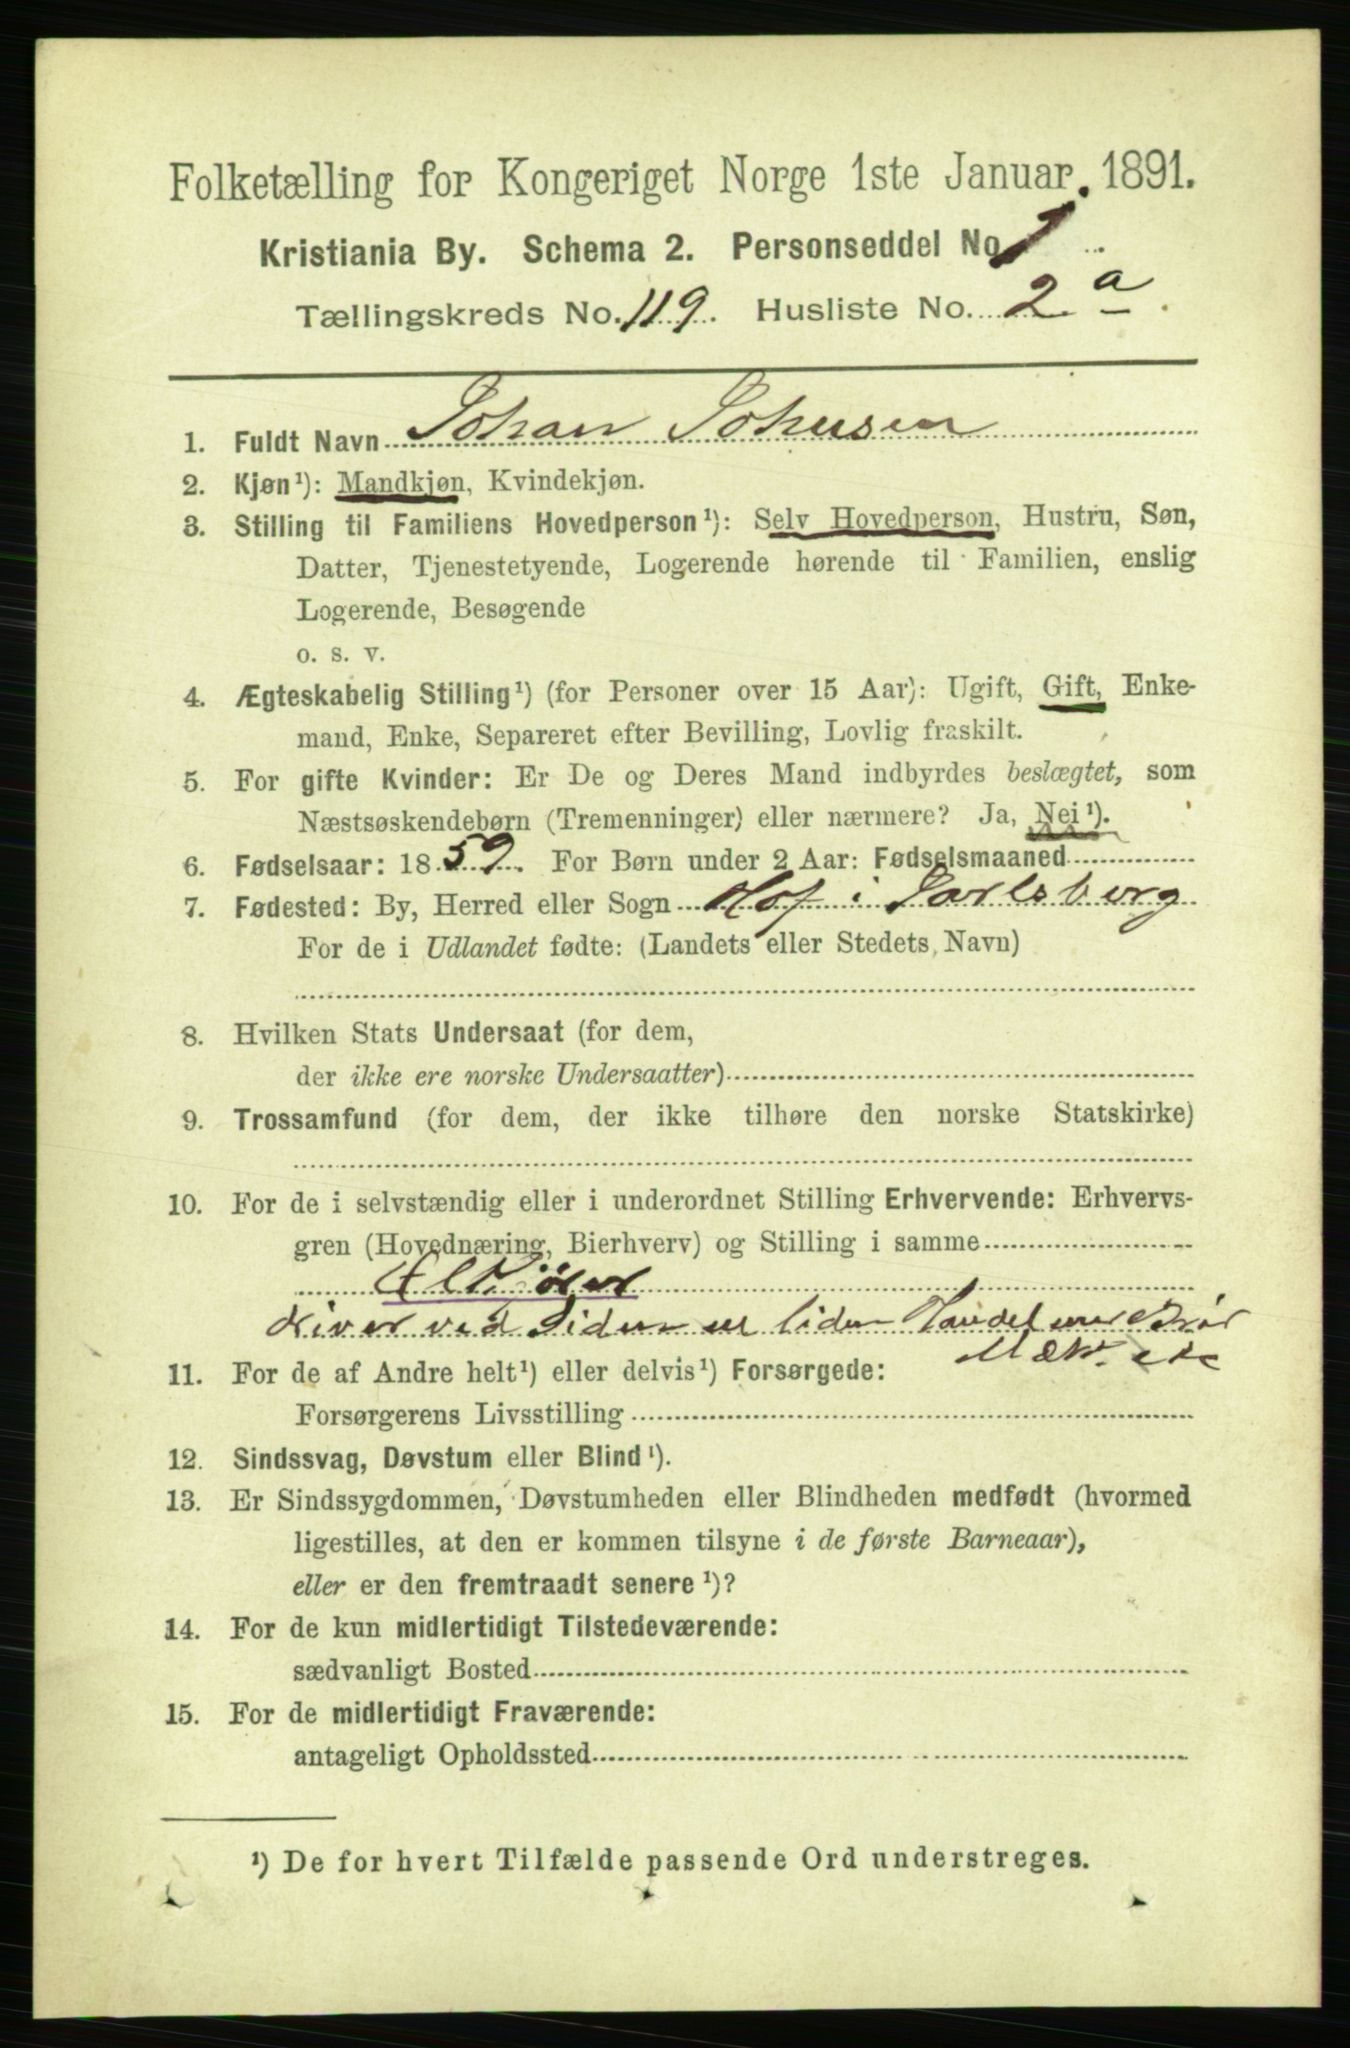 Folketælling for Kongeriget Norge 1ste Januar 1891.
Kristiania By. Schema 2. Personseddel No 1
Tællingskreds No. 119. Husliste No. 2 a
1. Fuldt Navn Johan Johnsen
2. Kjøn¹): Mandkjøn, Kvindekjøn.
3. Stilling til Familiens Hovedperson¹): Selv Hovedperson, Hustru, Søn,
Datter, Tjenestetyende, Logerende hørende til Familien, enslig
Logerende, Besøgende
o. s. v.
4. Ægteskabelig Stilling¹) (for Personer over 15 Aar): Ugift, Gift, Enke-
mand, Enke, Separeret efter Bevilling, Lovlig fraskilt.
5. For gifte Kvinder: Er De og Deres Mand indbyrdes beslægtet, som
Næstsøskendebørn (Tremenninger) eller nærmere? Ja, Nei¹).
6. Fødselsaar: 1859. For Børn under 2 Aar: Fødselsmaaned
7. Fødested: By, Herred eller Sogn Hof i Jarlsberg
For de i Udlandet fødte: (Landets eller Stedets Navn)
8. Hvilken Stats Undersaat (for dem,
der ikke ere norske Undersaatter)
9. Trossamfund (for dem, der ikke tilhøre den norske Statskirke)
10. For de i selvstændig eller i underordnet Stilling Erhvervende: Erhvervs-
gren (Hovednæring, Bierhverv) og Stilling i samme
Ølkjører
driver ved Siden en liden Handel med
11. For de af Andre helt¹) eller delvis¹) Forsørgede:
Forsørgerens Livsstilling
12. Sindssvag, Døvstum eller Blind¹).
13. Er Sindssygdommen, Døvstumheden eller Blindheden medfødt (hvormed
ligestilles, at den er kommen tilsyne i de første Barneaar),
eller er den fremtraadt senere¹)?
14. For de kun midlertidigt Tilstedeværende:
sædvanligt Bosted
15. For de midlertidigt Fraværende:
antageligt Opholdssted
¹) De for hvert Tilfælde passende Ord understreges.